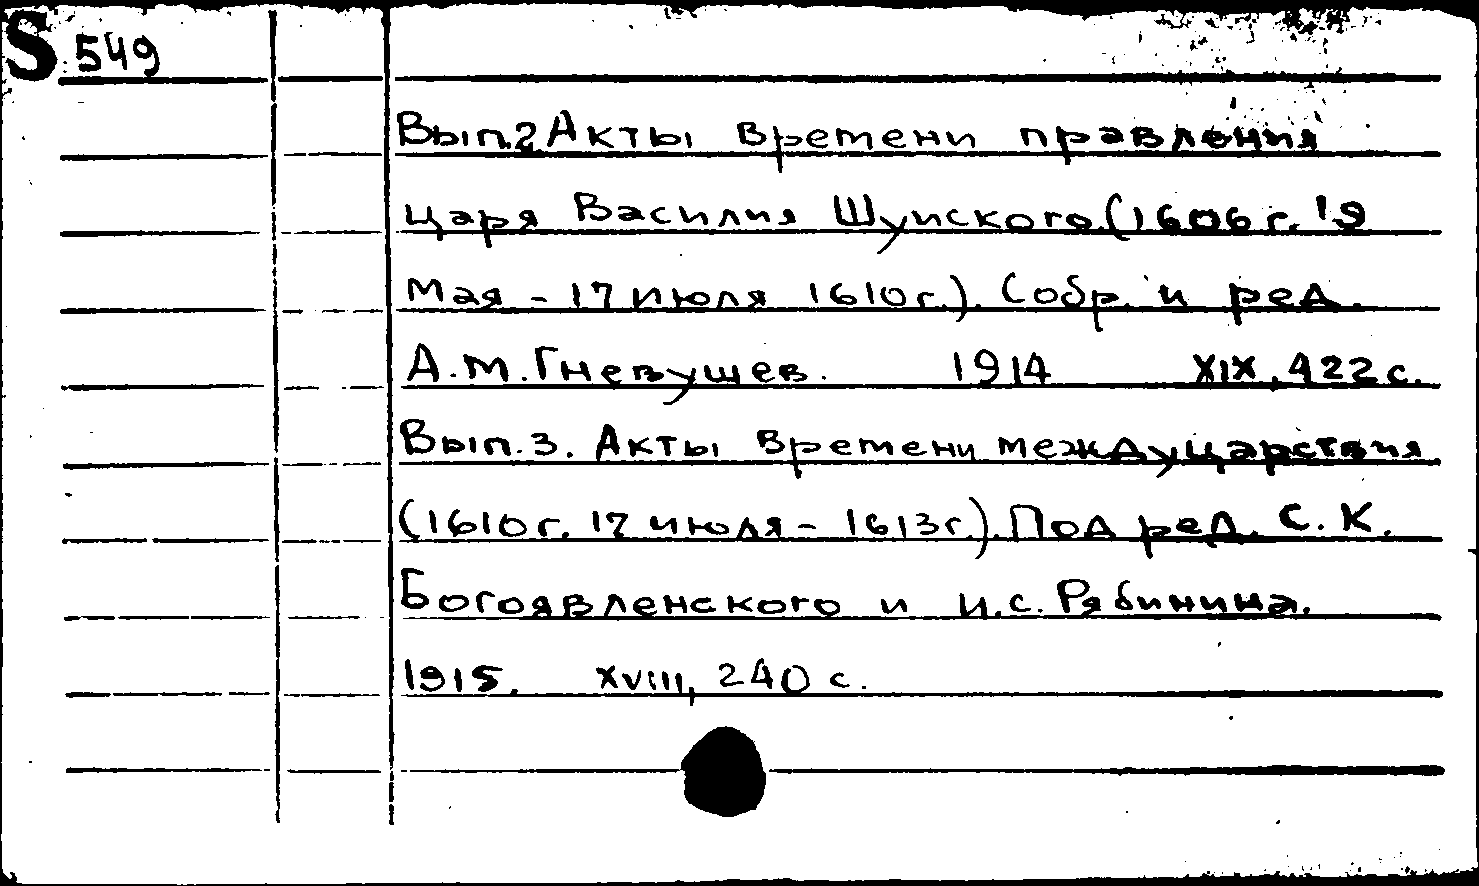 S 549
Вып.2 Акты времени правления
царя Василия Шуиского (1606 г. 19
мая - 17 июля 1610 г.). Собр. и ред.
А.М.Гневушев. 1914 XIX, 422 с.
Вып.3. Акты времени междуцарствия
(1610 г. 17 июля - 1613 г.). Под ред. С.К.
Богоявленского и И.С. Рябинина.
1915. XVIII, 240 с.